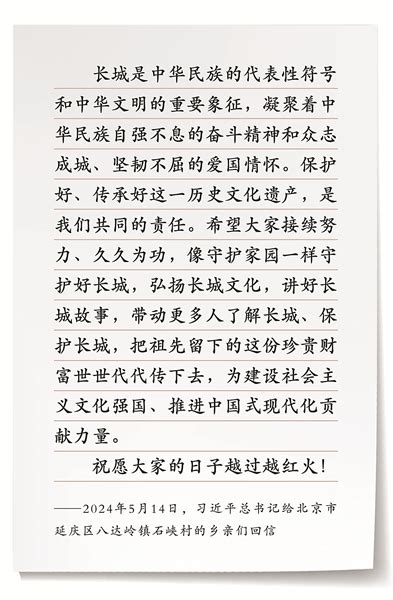 长城是中华民族的代表性符号
和中华文明的重要象征，凝聚着中
华民族自强不息的奋斗精神和众志
成城、坚韧不屈的爱国情怀。保护
好、传承好这一历史文化遗产，是
我们共同的责任。希望大家接续努
力、久久为功，像守护家园一样守
护好长城，弘扬长城文化，讲好长
城故事，带动更多人了解长城、保
护长城，把祖先留下的这份珍贵财
富世世代代传下去，为建设社会主
义文化强国、推进中国式现代化贡
献力量。
祝愿大家的日子越过越红火！
——2024年5月14日，习近平总书记给北京市
延庆区八达岭镇石峡村的乡亲们回信